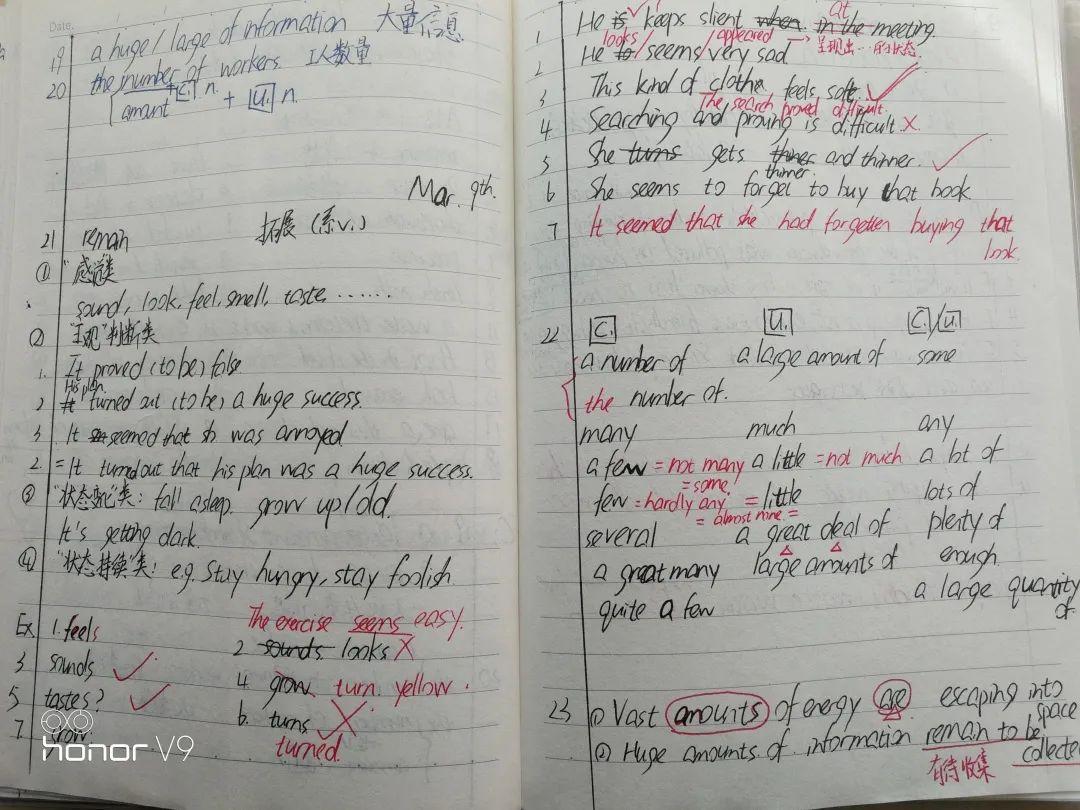 Date.
19 a huge / large of information 大量信息
20 the number of workers. 工人数量
+ C. n.
amount + U. n.
Mar. 9th.
21 remain 拓展 (系v.)
① "感觉"类
sound, look, feel, smell, taste ……
② "呈现"判断类
1. It proved (to be) false
His plan
2 It turned out (to be) a huge success.
3. It seemed that sh was annoyed
2. = It turned out that his plan was a huge success.
③ "状态变化"类: fall asleep. grow up/old.
It's getting dark.
④ "状态持续"类: e.g. Stay hungry, stay foolish
The exercise seems easy.
Ex 1. feels 2 sounds. looks X
3 sounds 4 grow. turn. yellow.
5 tastes? 6. turns X
turned.
7
honor V9
at
1 He is keeps slient when in the meeting.
looks / appeared → 呈现出…的状态
2 He is / seems / very sad
3 This kind of clothe feels soft.
The search proved difficult.
4 Searching and proving is difficult. X
5 She turns gets thiner and thinner.
thinner.
6 She seems to forget to buy that book
7 It seemed that she had forgetten buying that
book.
22 C. U. C./U.
a number of a large amount of some
the number of.
many much any
a few = not many a little = not much a lot of
= some.
few = hardly any = little lots of
= almost none =
several a great deal of plenty of
a great many large amounts of enough
quite a few a large quantity
of
23 ① Vast amounts of energy are escaping into
space
② Huge amounts of information remain to be
有待收集 collecte